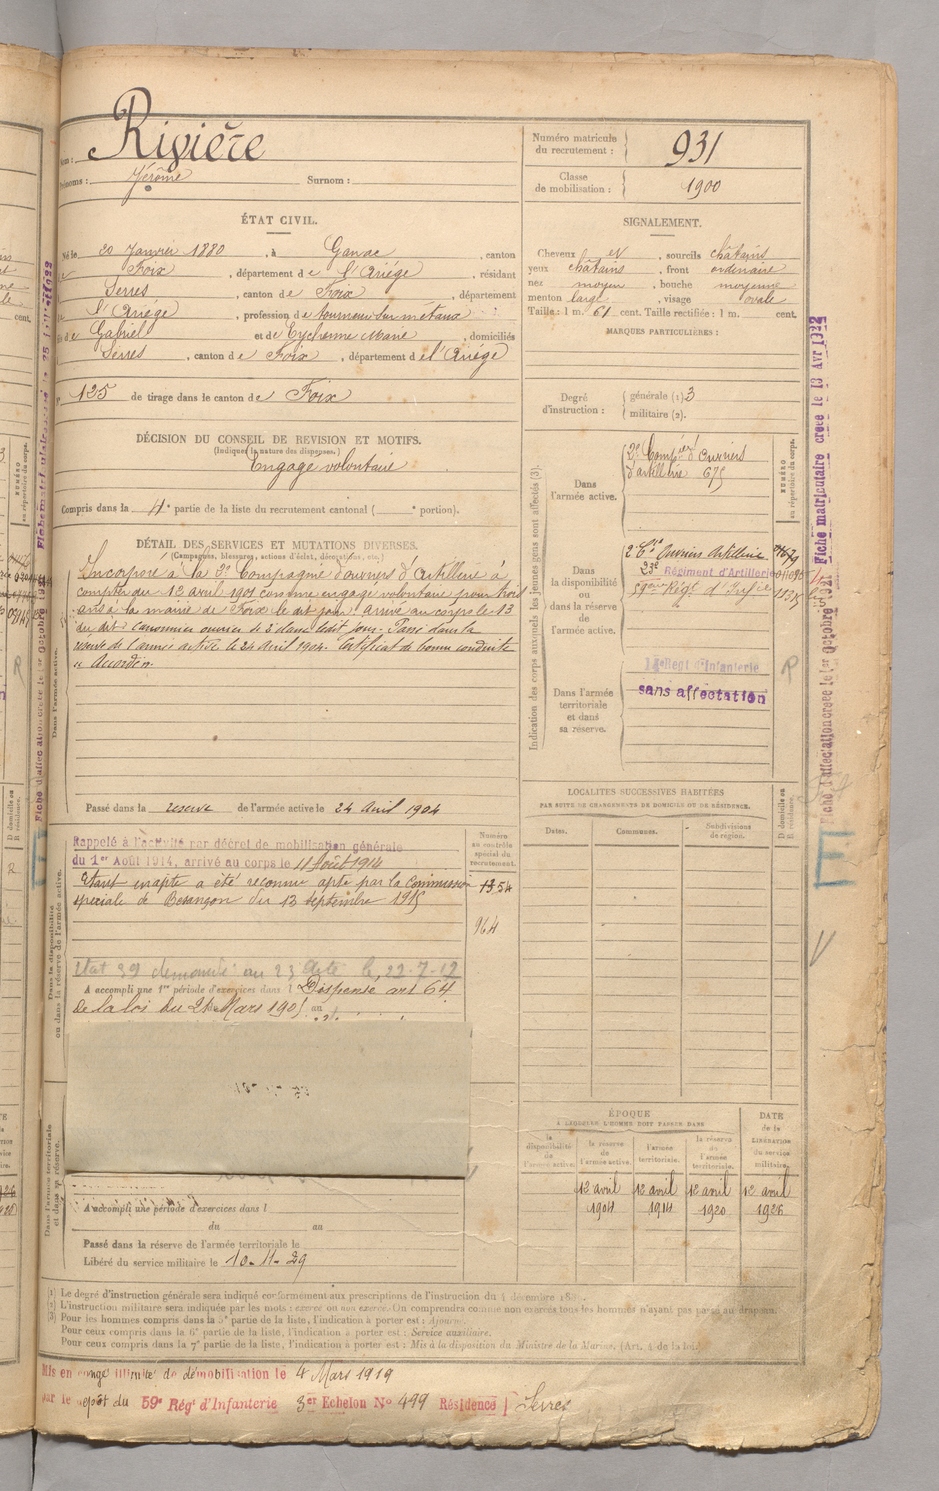 Nom : Rivière
Prénoms : Jérôme Surnom :
Numéro matricule du recrutement : 931
Classe de mobilisation : 1900
ÉTAT CIVIL.
Né le 20 Janvier 1880, à Ganac, canton
de Foix, département de l'Ariége, résidant
Serres, canton de Foix, département
l'Ariége, profession de tourneur sur métaux
fils de Gabriel et de Eychenne Marie, domiciliés
Serres, canton de Foix, département de l'Ariége
N° 125 de tirage dans le canton de Foix
SIGNALEMENT.
Cheveux et, sourcils châtains
yeux châtains, front ordinaire
nez moyen, bouche moyenne
menton large, visage ovale
Taille : 1 m. 61 cent. Taille rectifiée : 1 m. cent.
MARQUES PARTICULIÈRES :
Degré d'instruction : générale (1) 3
militaire (2).
DÉCISION DU CONSEIL DE REVISION ET MOTIFS.
(Indiquer la nature des dispenses.)
Engagé volontaire
Compris dans la 4e partie de la liste du recrutement cantonal ( e portion).
DÉTAIL DES SERVICES ET MUTATIONS DIVERSES.
(Campagnes, blessures, actions d'éclat, décorations, etc.)
Incorporé à la 3e Compagnie d'ouvriers d'Artillerie à
compter du 13 avril 1901 comme engagé volontaire pour trois
ans à la mairie de Foix le dit jour. Arrivé au corps le 13
du dit. Canonnier ouvrier de 2e classe ledit jour. Passé dans la
réserve de l'armée active le 24 avril 1904. Certificat de bonne conduite
" Accordé "
Passé dans la réserve de l'armée active le 24 Avril 1904
Indication des corps auxquels les jeunes gens sont affectés (3).
NUMÉRO au répertoire du corps.
Dans l'armée active.
3e Compie d'Ouvriers
d'artillerie 675
Dans la disponibilité ou dans la réserve de l'armée active.
2e Cie Ouvriers Artillerie
23e Régiment d'Artillerie
59eme Régt d'Infie
Dans l'armée territoriale et dans sa réserve.
14e Régt d'Infanterie
sans affectation
R
LOCALITÉS SUCCESSIVES HABITÉES
PAR SUITE DE CHANGEMENTS DE DOMICILE OU DE RÉSIDENCE.
Dates. Communes. Subdivisions de région.
D domicile ou R résidence.
Numéro au contrôle spécial du recrutement.
Dans la disponibilité ou dans la réserve de l'armée active.
Rappelé à l'activité par décret de mobilisation générale
du 1er Août 1914, arrivé au corps le 11 Août 1914
Etant inapte a été reconnu apte par la Commission
spéciale de Besançon du 13 septembre 1915
1354
964
Etat 39 demandé au 23 Artie le, 22-7-12
A accompli une 1re période d'exercices dans l Dispensé art 64
de la loi du 21 Mars 1905 au
Dans l'armée territoriale et dans sa réserve.
A accompli une période d'exercices dans l
du au
Passé dans la réserve de l'armée territoriale le
Libéré du service militaire le 10-11-29
ÉPOQUE
À LAQUELLE L'HOMME DOIT PASSER DANS
la disponibilité de l'armée active.
la réserve de l'armée active.
l'armée territoriale.
la réserve de l'armée territoriale.
DATE de la LIBÉRATION du service militaire.
12 avril 1904
12 avril 1914
12 avril 1920
12 avril 1926
(1) Le degré d'instruction générale sera indiqué conformément aux prescriptions de l'instruction du 4 décembre
(2) L'instruction militaire sera indiquée par les mots : exercé ou non exercé. On comprendra comme non exercés tous les hommes n'ayant pas passé au drapeau.
(3) Pour les hommes compris dans la 5e partie de la liste, l'indication à porter est : Ajourné.
Pour ceux compris dans la 6e partie de la liste, l'indication à porter est : Service auxiliaire.
Pour ceux compris dans la 7e partie de la liste, l'indication à porter est : Mis à la disposition du Ministre de la Marine. (Art. 4 de la loi.)
Mis en congé illimité de démobilisation le 4 Mars 1919
par le dépôt du 59e Régt d'Infanterie 3er Echelon No 499 Résidence Serres
Fiche matriculaire créée le 13 Avr 1922
Fiche d'affectation créée le 1er Octobre